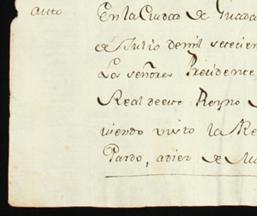 auto
En la Ciudad de
de Julio de mil setecien
Los señores Presidente,
Real de este Reyno
viendo visto la Re
Pardo, a diez de